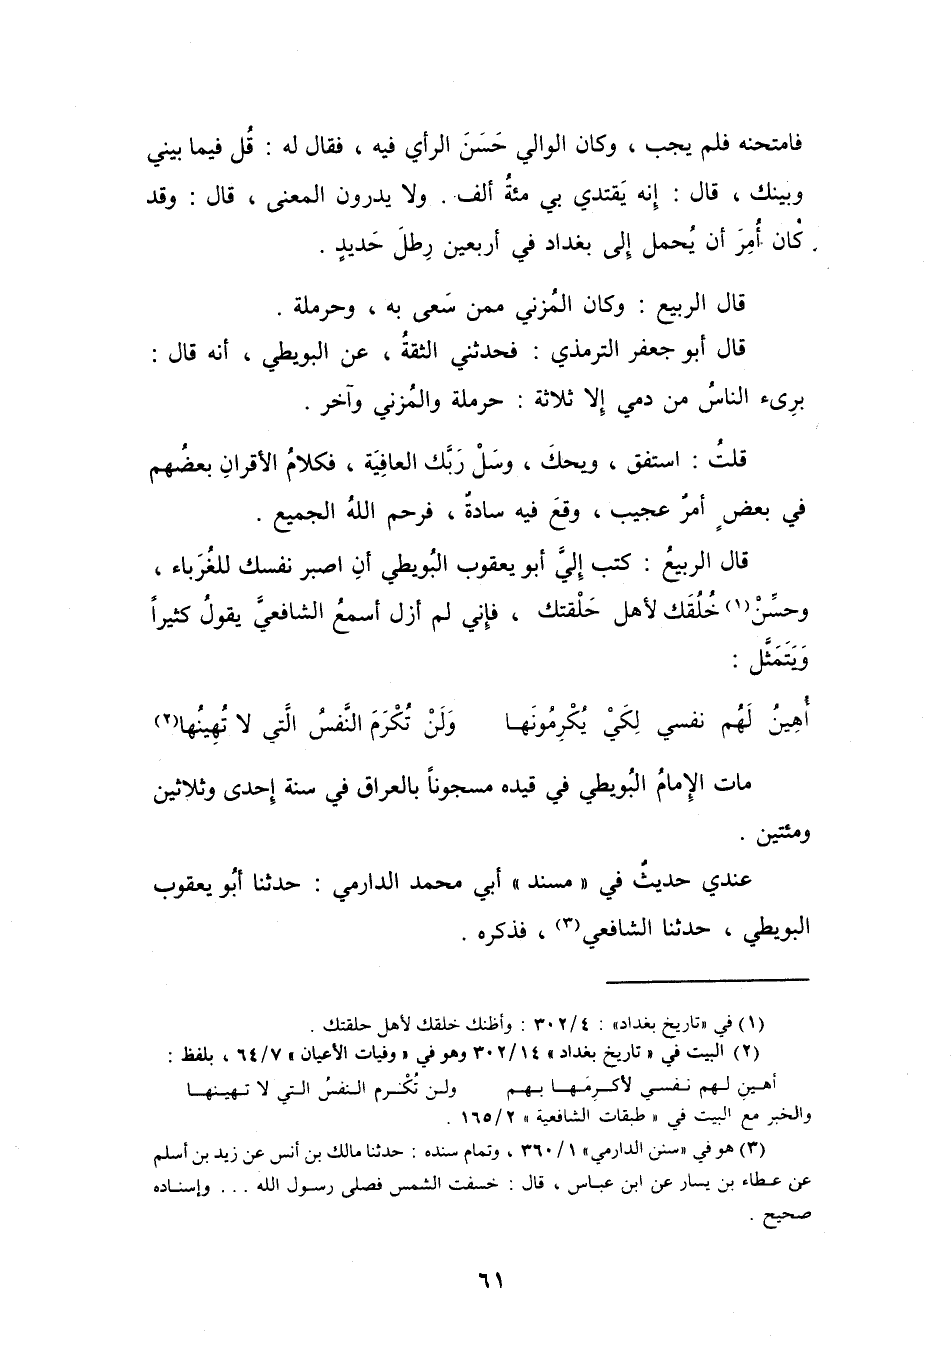 فامتحنه فلم يجب ، وكان الوالي حَسَنَ الرأي فيه ، فقال له : قُل فيما بيني
وبينك ، قال : إنه يَقتدي بي مئةُ ألف . ولا يدرون المعنى ، قال : وقد
كان أُمِرَ أن يُحمل إلى بغداد في أربعين رِطلَ حَديدٍ .
قال الربيع : وكان المُزني ممن سَعى به ، وحرملة .
قال أبو جعفر الترمذي : فحدثني الثقةُ ، عن البويطي ، أنه قال :
برِىء الناسُ من دمي إلا ثلاثة : حرملة والمُزني وآخر .
قلتُ : استفق ، ويحكَ ، وسَلْ رَبَّك العافِيَة ، فكلامُ الأقرانِ بعضُهم
في بعضٍ أمرٌ عجيب ، وقعَ فيه سادةٌ ، فرحم اللهُ الجميع .
قال الربيعُ : كتب إليَّ أبو يعقوب البُويطي أنِ اصبر نفسك للغُرَباء ،
وحسِّنْ(١) خُلُقَك لأهل حَلْقتك ، فإني لم أزل أسمعُ الشافعيَّ يقولُ كثيراً
وَيَتَمَثَّل :
أُهِينُ لَهُم نفسي لِكَيْ يُكْرِمُونَها    وَلَنْ تُكْرَمَ النَّفسُ الَّتي لا تُهِينُها(٢)
مات الإمامُ البُويطي في قيده مسجوناً بالعراق في سنة إحدى وثلاثين
ومئتين .
عندي حديثٌ في « مسند » أبي محمد الدارمي : حدثنا أبُو يعقوب
البويطي ، حدثنا الشافعي(٣) ، فذكره .
(١) في «تاريخ بغداد» : ٣٠٢/٤ : وأظنك خلقك لأهل حلقتك .
(٢) البيت في « تاريخ بغداد » ٣٠٢/١٤ وهو في « وفيات الأعيان » ٦٤/٧ ، بلفظ :
أهين لهم نفسي لأكرمَها بهم    ولن تُكْرم النفسُ التي لا تهينها
والخبر مع البيت في « طبقات الشافعية » ١٦٥/٢ .
(٣) هو في «سنن الدارمي» ٣٦٠/١ ، وتمام سنده : حدثنا مالك بن أنس عن زيد بن أسلم
عن عطاء بن يسار عن ابن عباس ، قال : خسفت الشمس فصلى رسول الله ... وإسناده
صحيح .
٦١